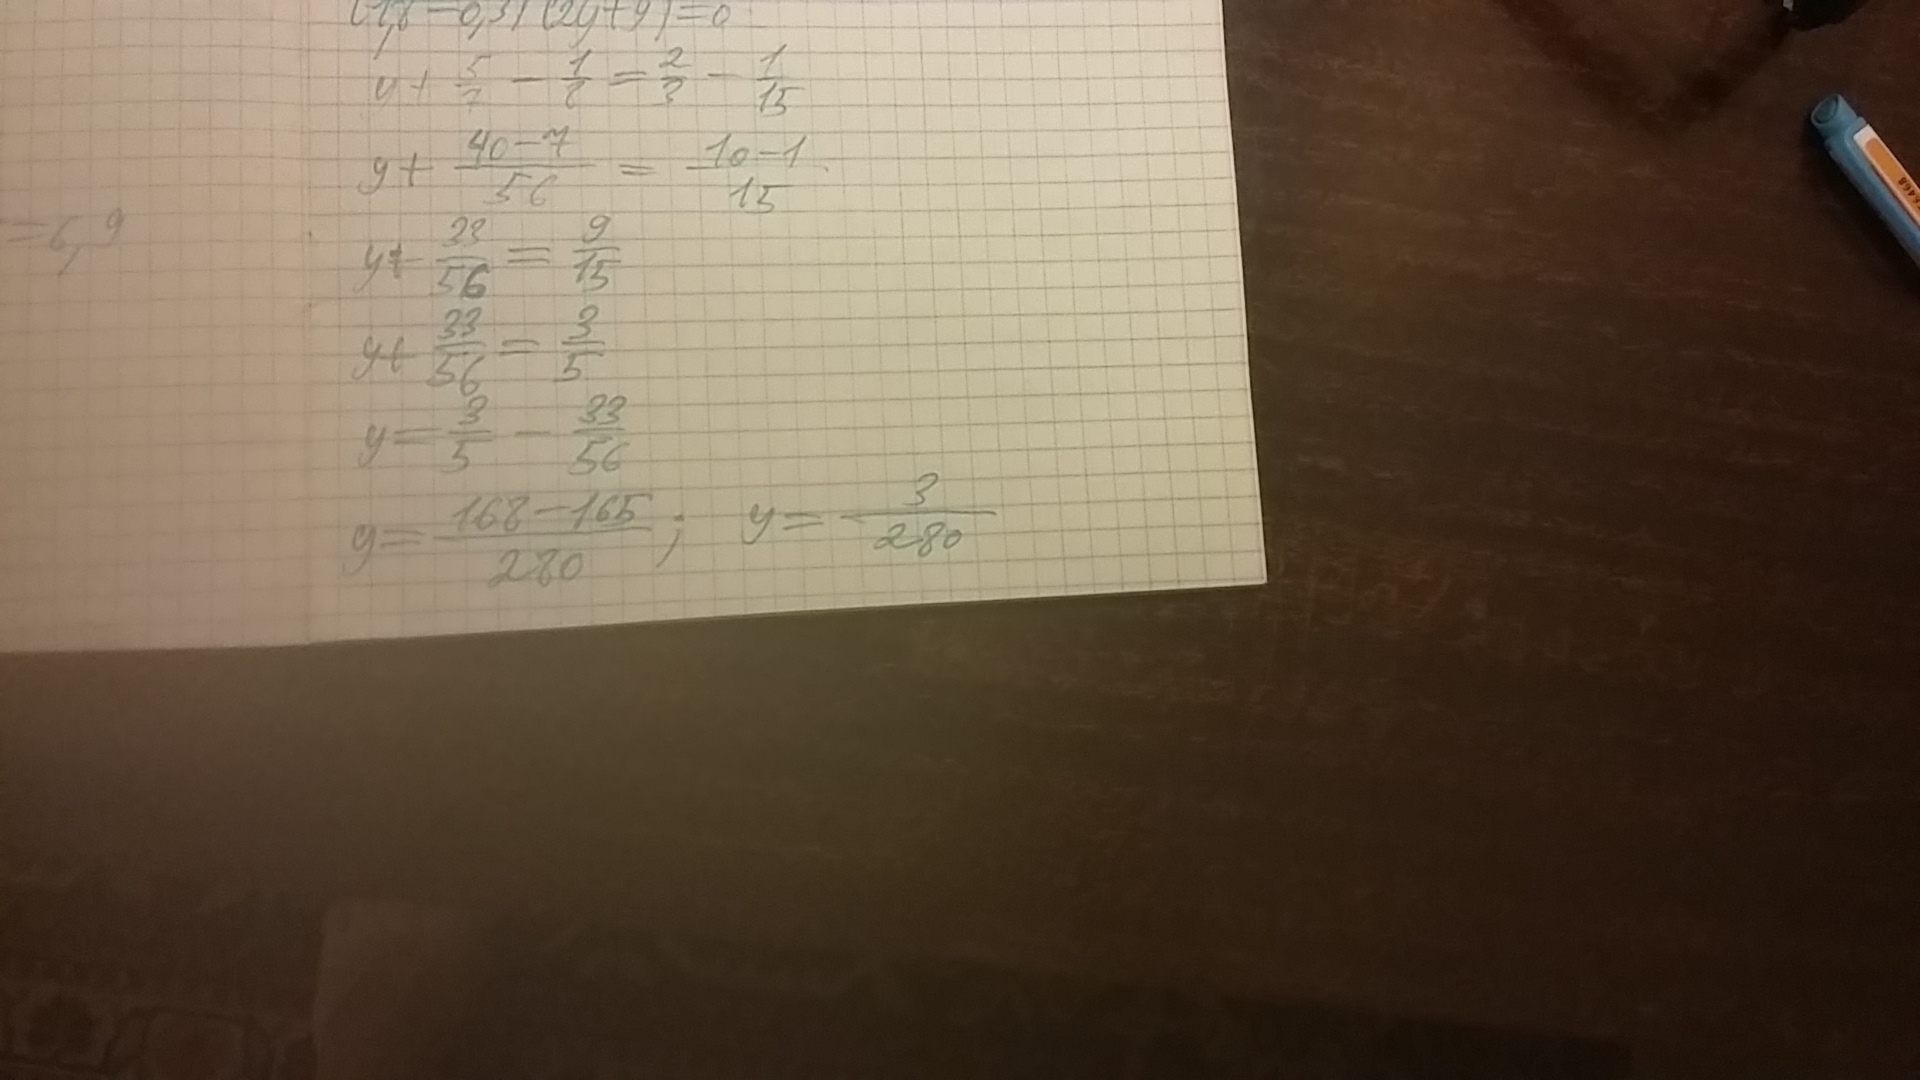 = 6,9
y + 5/7 - 1/8 = 2/3 - 1/15
y + (40-7)/56 = (10-1)/15
y + 33/56 = 9/15
y + 33/56 = 3/5
y = 3/5 - 33/56
y = (168-165)/280 ; y = 3/280